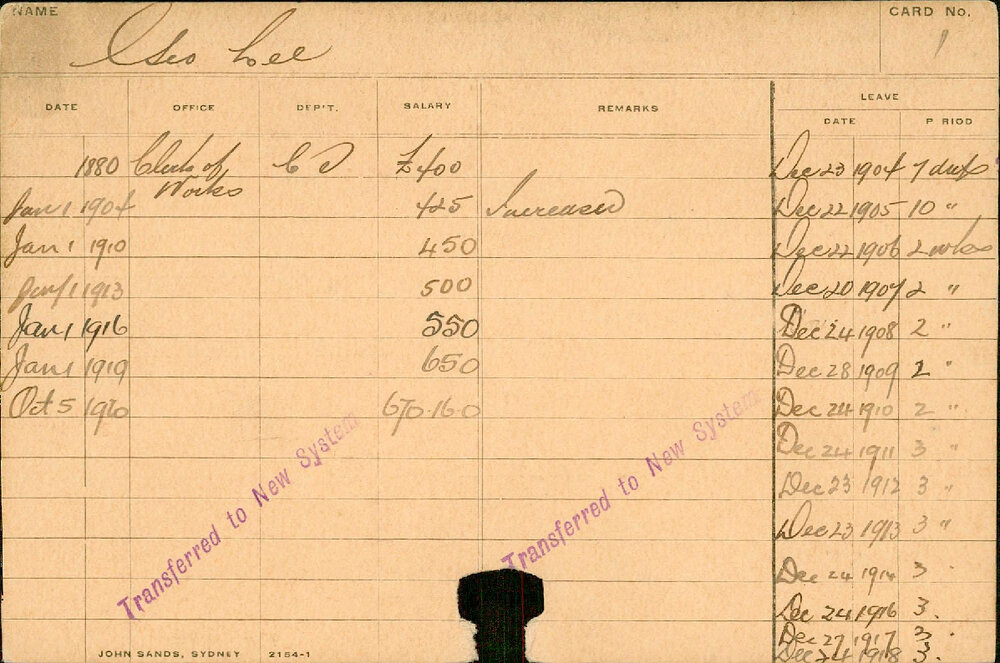 NAME
CARD No.
Geo Lee
1
DATE OFFICE DEP'T. SALARY REMARKS LEAVE
DATE P RIOD
1880 Clerk of Works £400 Dec 23 1904 7 days
Jan 1 1904 425 Increased Dec 22 1905 10 "
Jan 1 1910 450 Dec 22 1906 2 wks
Jan 1 1913 500 Dec 20 1907 2 "
Jan 1 1916 550 Dec 24 1908 2 "
Jan 1 1919 650 Dec 28 1909 2 "
Oct 5 1920 670.16.0 Dec 24 1910 2 "
Dec 24 1911 3 "
Dec 23 1912 3 "
Dec 23 1913 3 "
Dec 24 1914 3
Dec 24 1916 3.
Dec 27 1917 3
Dec 24 1918 3.
Transferred to New System
Transferred to New System
JOHN SANDS, SYDNEY 2154-1